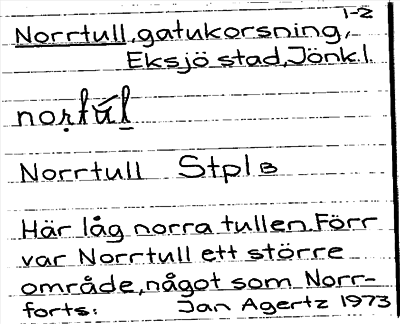 1-2
Norrtull, gatukorsning,
Eksjö stad, Jönk.l.
Norrtull Stpl B
Här låg norra tullen. Förr
var Norrtull ett större
område, något som Norr-
forts: Jan Agertz 1973